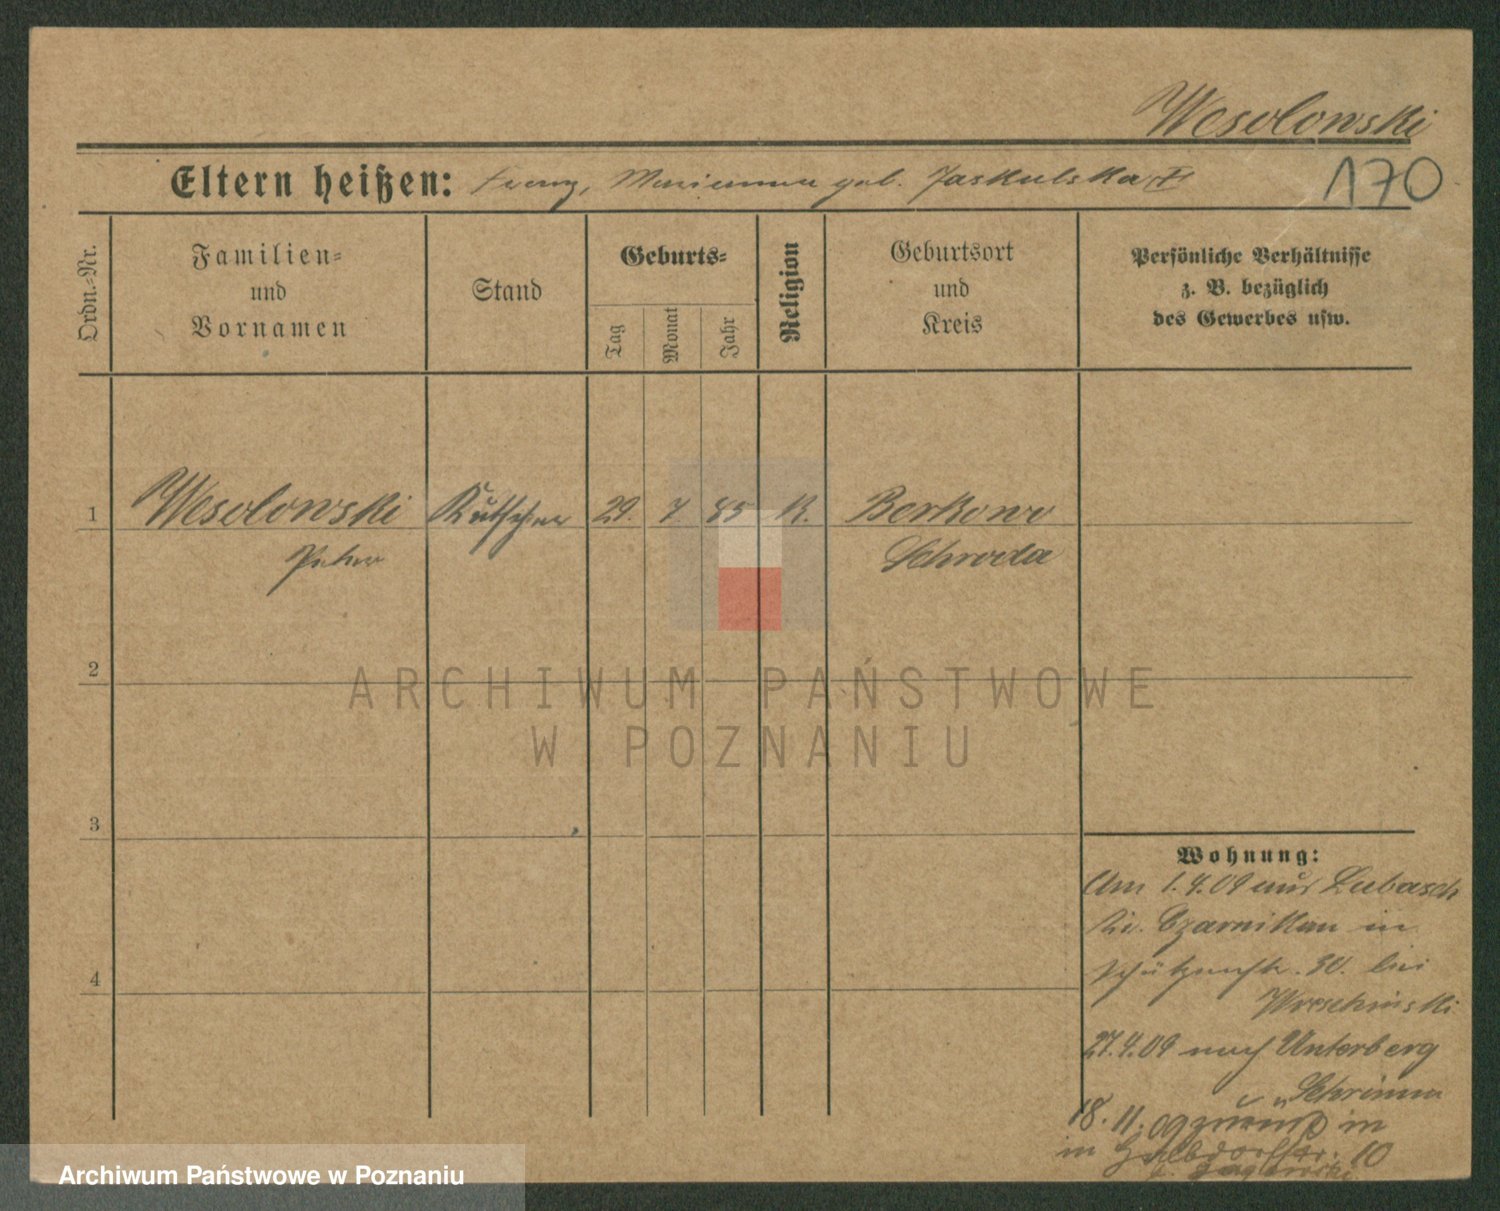 Wesolowski
170
Eltern heißen: Franz, Marianna geb. Jaskulska
Ordn.-Nr.
Familien-
und
Vornamen
Stand
Geburts-
Tag
Monat
Jahr
Religion
Geburtsort
und
Kreis
Persönliche Verhältnisse
z. B. bezüglich
des Gewerbes usw.
1 Wesolowski Kutscher 29. 7. 85 K. Berkowo
Peter Schroda
2
3
4
Wohnung:
Am 1.4.09 aus Lubasch
Kr. Czarnikau in
Schützenstr. 30. bei
27.4.09 nach Unterberg
Schrimm
18.11.09 zurück in
in Halbdorfstr. 10
ARCHIWUM PAŃSTWOWE
W POZNANIU
Archiwum Państwowe w Poznaniu